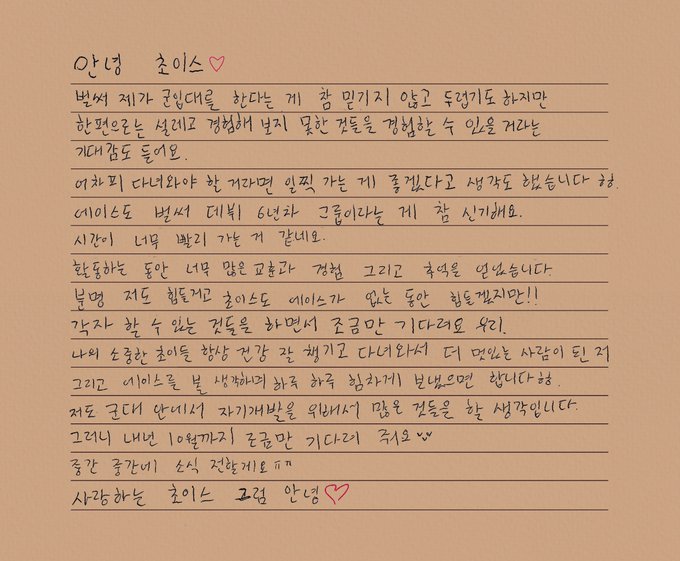 안녕 초이스♡
벌써 제가 군입대를 한다는 게 참 믿기지 않고 두렵기도 하지만
한편으로는 설레고 경험해 보지 못한 것들을 경험할 수 있을 거라는
기대감도 들어요.
어차피 다녀와야 할 거라면 일찍 가는 게 좋겠다고 생각도 했습니다 헝.
에이스도 벌써 데뷔 6년차 그룹이라는 게 참 신기해요.
시간이 너무 빨리 가는 거 같네요.
활동하는 동안 너무 많은 교훈과 경험 그리고 추억을 얻었습니다.
분명 저도 힘들거고 초이스도 에이스가 없는 동안 힘들겠지만!!
각자 할 수 있는 것들을 하면서 조금만 기다려요 우리.
나의 소중한 초이들 항상 건강 잘 챙기고 다녀와서 더 멋있는 사람이 된 저
그리고 에이스를 볼 생각하며 하루 하루 힘차게 보냈으면 합니다헝.
저도 군대 안에서 자기개발을 위해서 많은 것들을 할 생각입니다.
그러니 내년 10월까지 조금만 기다려 줘요
중간 중간에 소식 전할게요ㅠㅠ
사랑하는 초이스 그럼 안녕♡